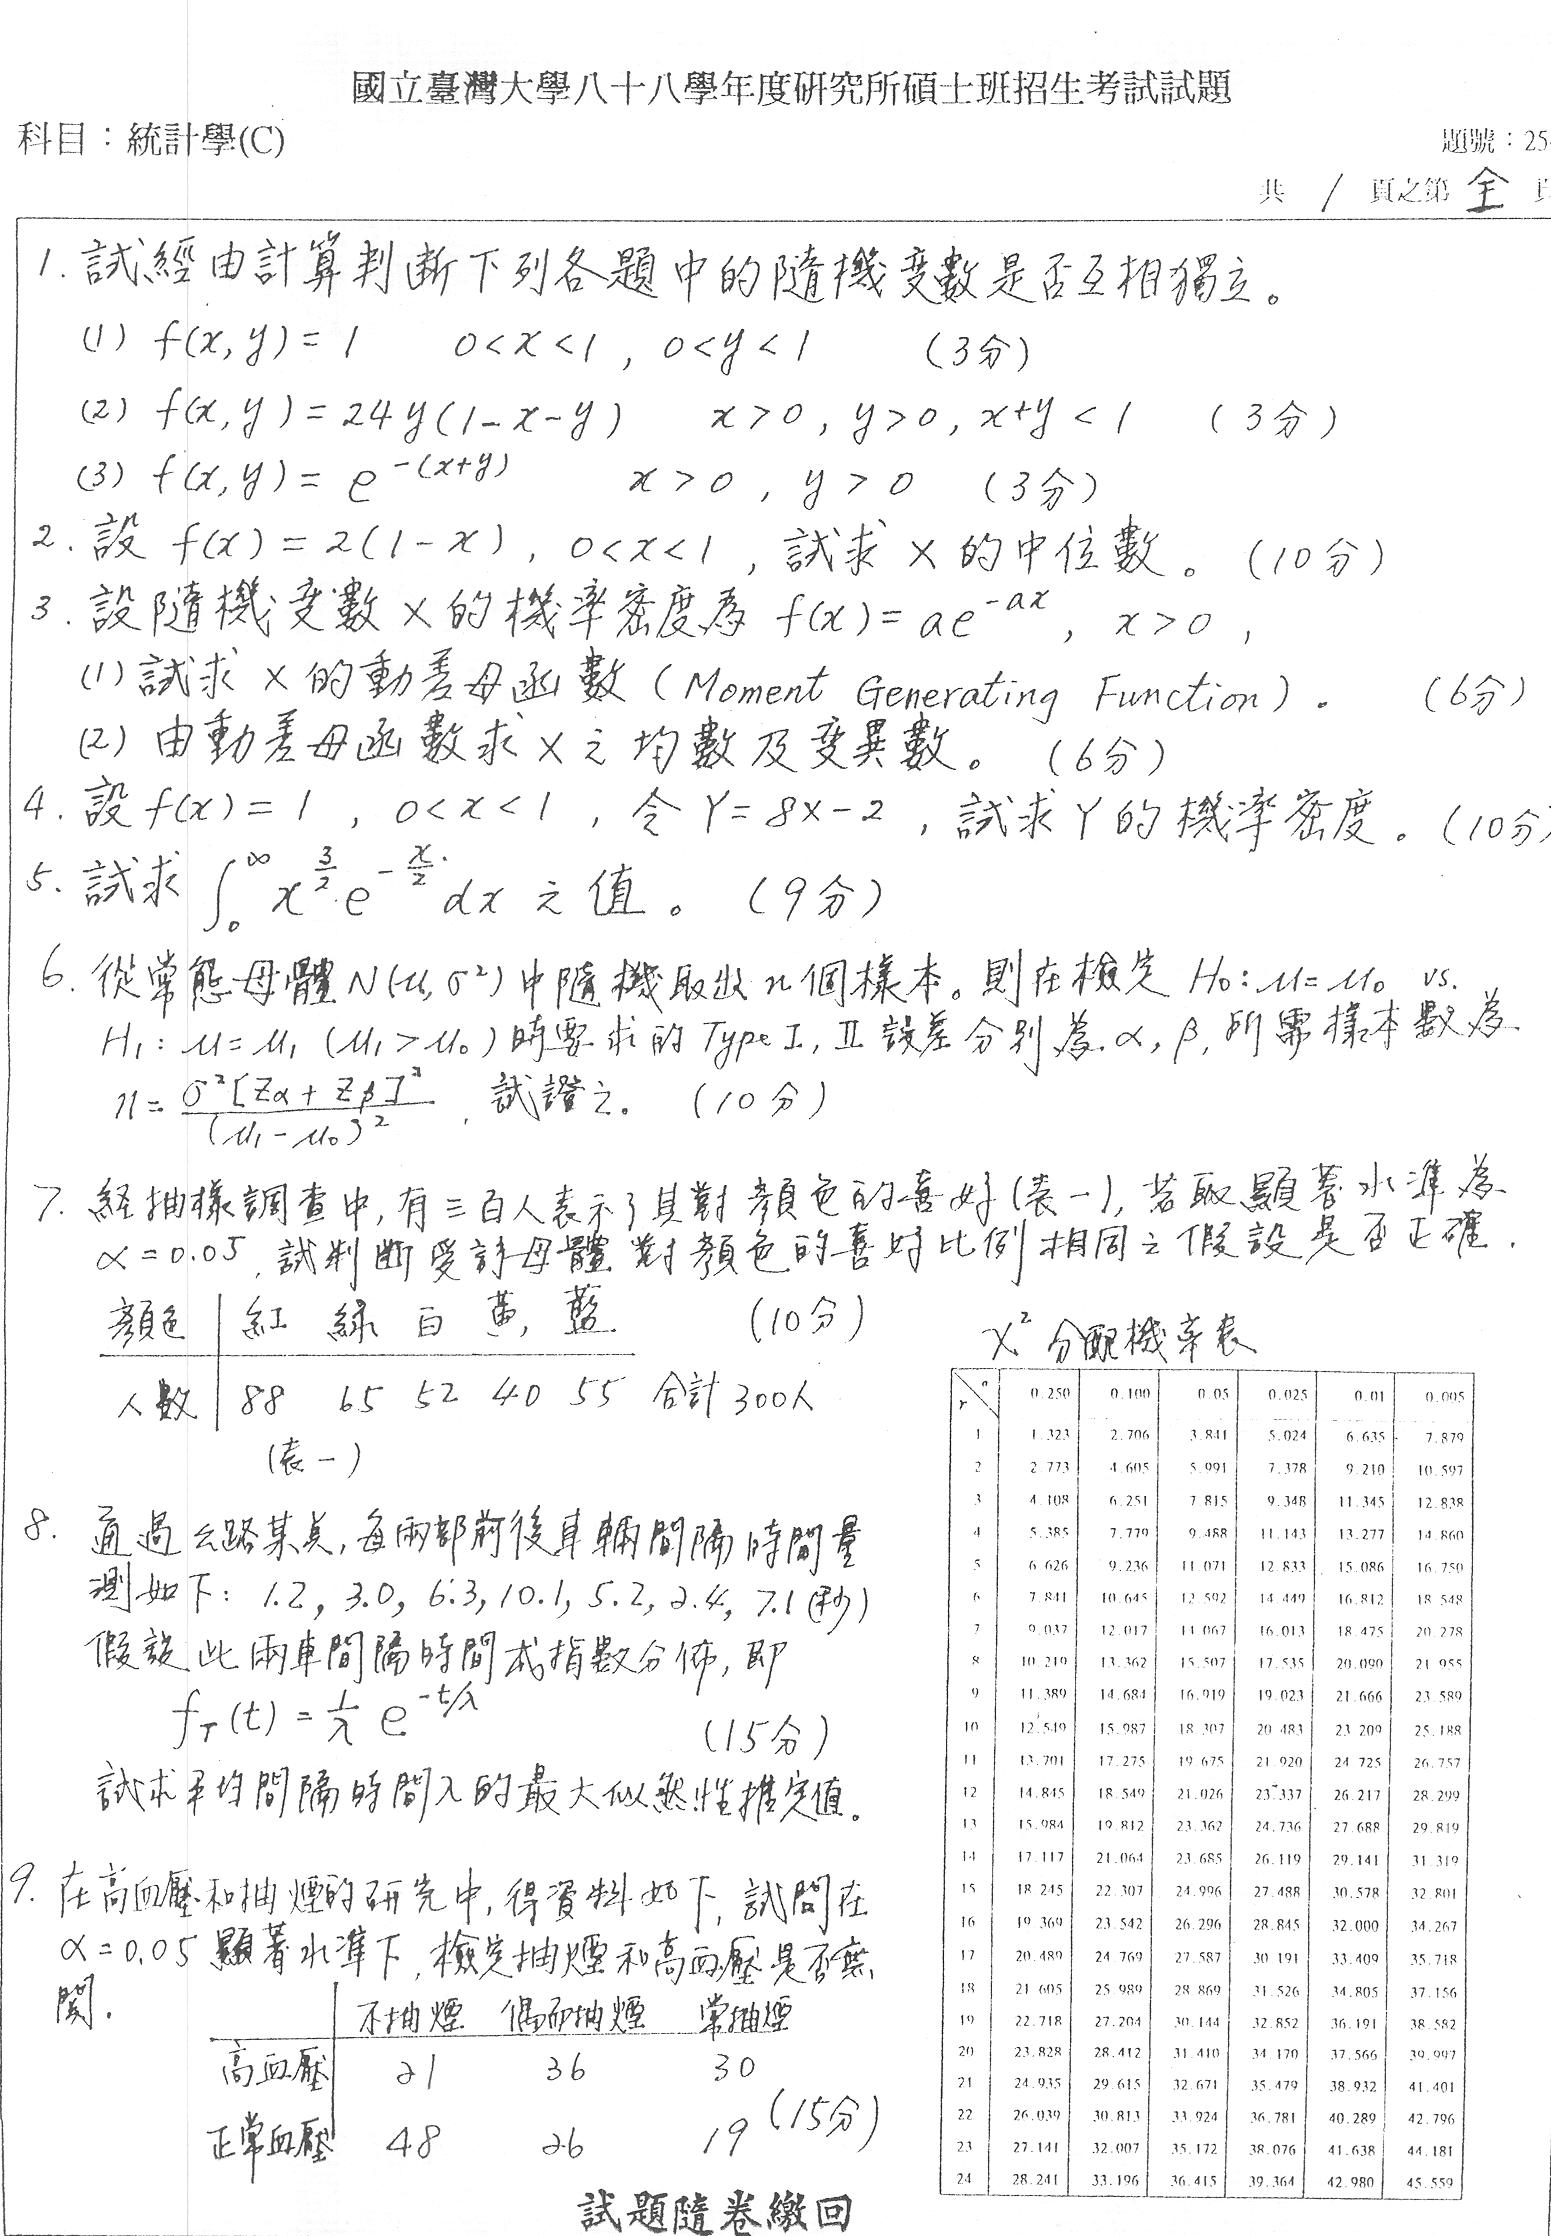 國立臺灣大學八十八學年度研究所碩士班招生考試試題
科目：統計學(C)
題號：25
共 1 頁之第 全 頁
1. 試經由計算判斷下列各題中的隨機變數是否互相獨立。
(1) f(x,y)=1 0<x<1, 0<y<1 (3分)
(2) f(x,y)=24y(1-x-y) x>0, y>0, x+y<1 (3分)
(3) f(x,y)=e^{-(x+y)} x>0, y>0 (3分)
2. 設 f(x)=2(1-x), 0<x<1, 試求 X 的中位數。(10分)
3. 設隨機變數 X 的機率密度為 f(x)=ae^{-ax}, x>0,
(1) 試求 X 的動差母函數 (Moment Generating Function)。 (6分)
(2) 由動差母函數求 X 之均數及變異數。 (6分)
4. 設 f(x)=1, 0<x<1, 令 Y=8X-2, 試求 Y 的機率密度。(10分)
5. 試求 ∫_0^∞ x^{3/2} e^{-x/2} dx 之值。 (9分)
6. 從常態母體 N(μ,σ²) 中隨機取出 n 個樣本。則在檢定 H₀: μ=μ₀ vs.
H₁: μ=μ₁ (μ₁>μ₀) 時要求的 Type I, II 誤差分別為 α, β, 所需樣本數為
n = σ²[Zα+Zβ]² / (μ₁-μ₀)², 試證之。 (10分)
7. 経抽樣調查中, 有三百人表示了其對顏色的喜好(表一), 若取顯著水準為
α=0.05, 試判斷受訪母體對顏色的喜好比例相同之假設是否正確.
顏色 紅 綠 白 黃 藍 (10分)
人數 88 65 52 40 55 合計 300人
(表一)
8. 通過公路某點, 每兩部前後車輛間隔時間量
測如下: 1.2, 3.0, 6.3, 10.1, 5.2, 2.4, 7.1 (秒)
假設此兩車間隔時間成指數分佈, 即
f_T(t) = 1/λ e^{-t/λ} (15分)
試求平均間隔時間 λ 的最大似然性推定值。
9. 在高血壓和抽煙的研究中, 得資料如下, 試問在
α=0.05 顯著水準下, 檢定抽煙和高血壓是否無
関.
不抽煙 偶而抽煙 常抽煙
高血壓 21 36 30
正常血壓 48 26 19 (15分)
χ² 分配機率表
r α 0.250 0.100 0.05 0.025 0.01 0.005
1 1.323 2.706 3.841 5.024 6.635 7.879
2 2.773 4.605 5.991 7.378 9.210 10.597
3 4.108 6.251 7.815 9.348 11.345 12.838
4 5.385 7.779 9.488 11.143 13.277 14.860
5 6.626 9.236 11.071 12.833 15.086 16.750
6 7.841 10.645 12.592 14.449 16.812 18.548
7 9.037 12.017 14.067 16.013 18.475 20.278
8 10.219 13.362 15.507 17.535 20.090 21.955
9 11.389 14.684 16.919 19.023 21.666 23.589
10 12.549 15.987 18.307 20.483 23.209 25.188
11 13.701 17.275 19.675 21.920 24.725 26.757
12 14.845 18.549 21.026 23.337 26.217 28.299
13 15.984 19.812 23.362 24.736 27.688 29.819
14 17.117 21.064 23.685 26.119 29.141 31.319
15 18.245 22.307 24.996 27.488 30.578 32.801
16 19.369 23.542 26.296 28.845 32.000 34.267
17 20.489 24.769 27.587 30.191 33.409 35.718
18 21.605 25.989 28.869 31.526 34.805 37.156
19 22.718 27.204 30.144 32.852 36.191 38.582
20 23.828 28.412 31.410 34.170 37.566 39.997
21 24.935 29.615 32.671 35.479 38.932 41.401
22 26.039 30.813 33.924 36.781 40.289 42.796
23 27.141 32.007 35.172 38.076 41.638 44.181
24 28.241 33.196 36.415 39.364 42.980 45.559
試題隨卷繳回